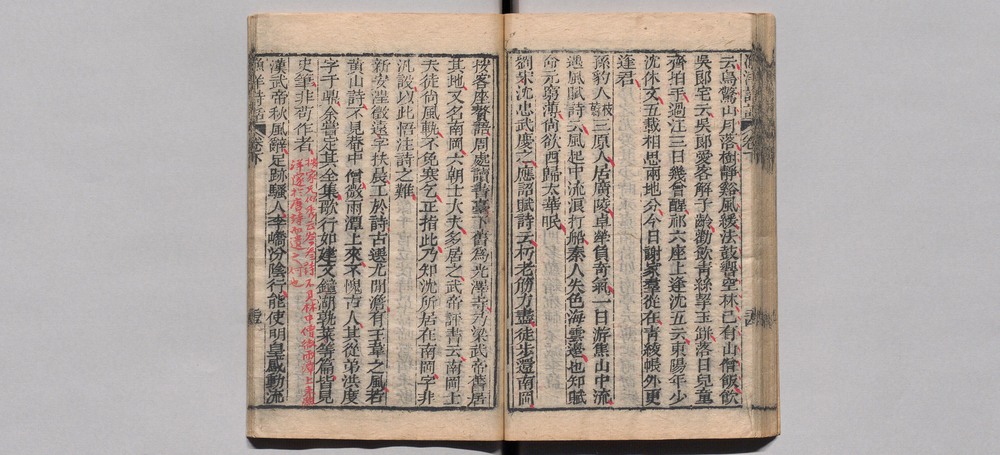 漁洋詩話 卷下
云鳥驚山月落樹靜谿風緩法鼓響空林已有山僧飯飲
吳郎宅云吳郎愛客解千齡勸飲青絲挈玉缾落日兒童
齊拍手過江三日幾曾醒邠六座上逢沈五云東陽年少
沈休文五載相思兩地分今日謝家羣從在青綾帳外更
逢君
孫豹人枝蔚三原人居廣陵卓犖負奇氣一日游焦山中流
遇風賦詩云風起中流浪打船秦人失色海雲邊也知賦
命元窮薄尚欲西歸太華眠
劉宋沈忠武慶之應詔賦詩云朽老筋力盡徒步還南岡
按客座贅語周處讀書臺舊為光澤寺乃梁武帝舊居
其地又名南岡六朝士大夫多居之武帝評書云南岡士
夫徒尚風軌不免寒乞正指此乃知沈所居在南岡字非
汎設以此悟注詩之難
新安汪徵遠字扶晨工於詩古選尤閒澹有王韋之風若
黃山詩不見巷中僧微雨潭上來不愧古人其從弟洪度
字于鼎余嘗定其全集歌行如建文鐘湖葉等篇皆見
史筆非苟作者
漢武帝秋風辭足跡騷人李嶠汾陰行能使明皇感動流
漁洋詩話 卷下